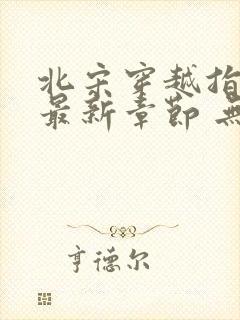 北宋穿越指
最新章节 無
亨德尔